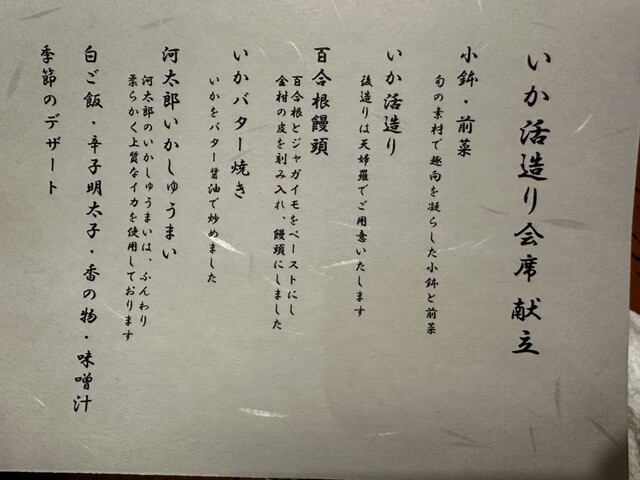 いか活造り会席 献立
小鉢・前菜
旬の素材で趣向を凝らした小鉢と前菜
いか活造り
後造りは天婦羅でご用意いたします
百合根饅頭
百合根とジャガイモをペーストにし
金村の皮を刻み入れ、饅頭にしました
いかバター焼き
いかをバター醤油で炒めました
河太郎いかしゅうまい
河太郎のいかしゅうまいは、ふんわり
柔らかく上質なイカを使用しております
白ご飯・辛子明太子・香の物・味噌汁
季節のデザート